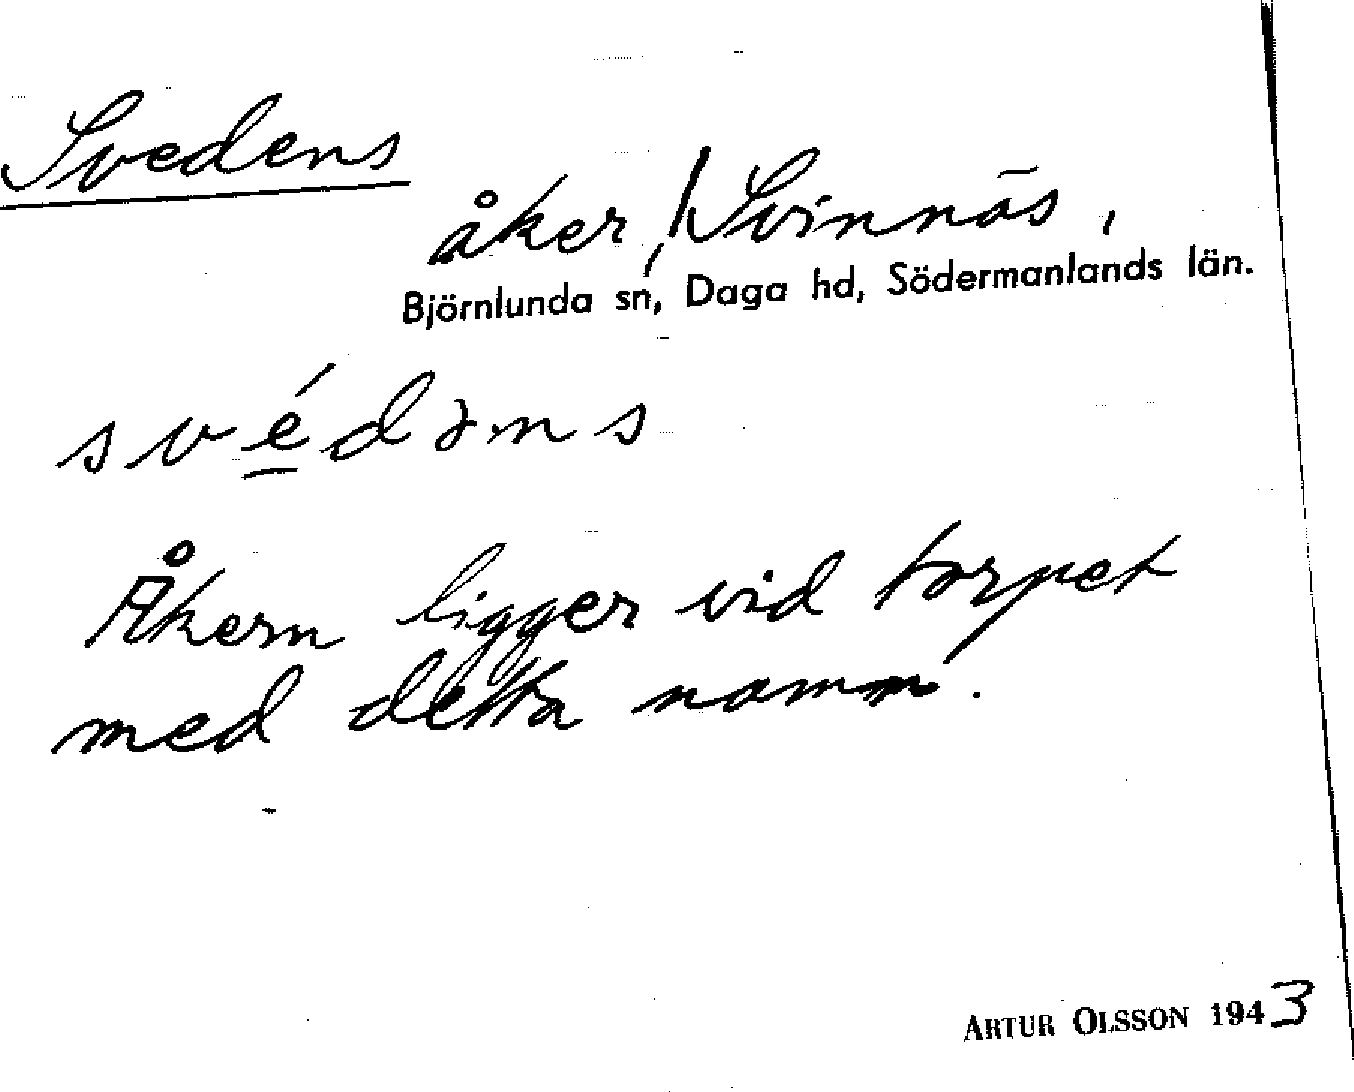 Svedens
åker, Svinnäs,
Björnlunda sn, Daga hd, Södermanlands län.
svédəns
Åkern ligger vid torpet
med detta namn.
ARTUR OLSSON 1943